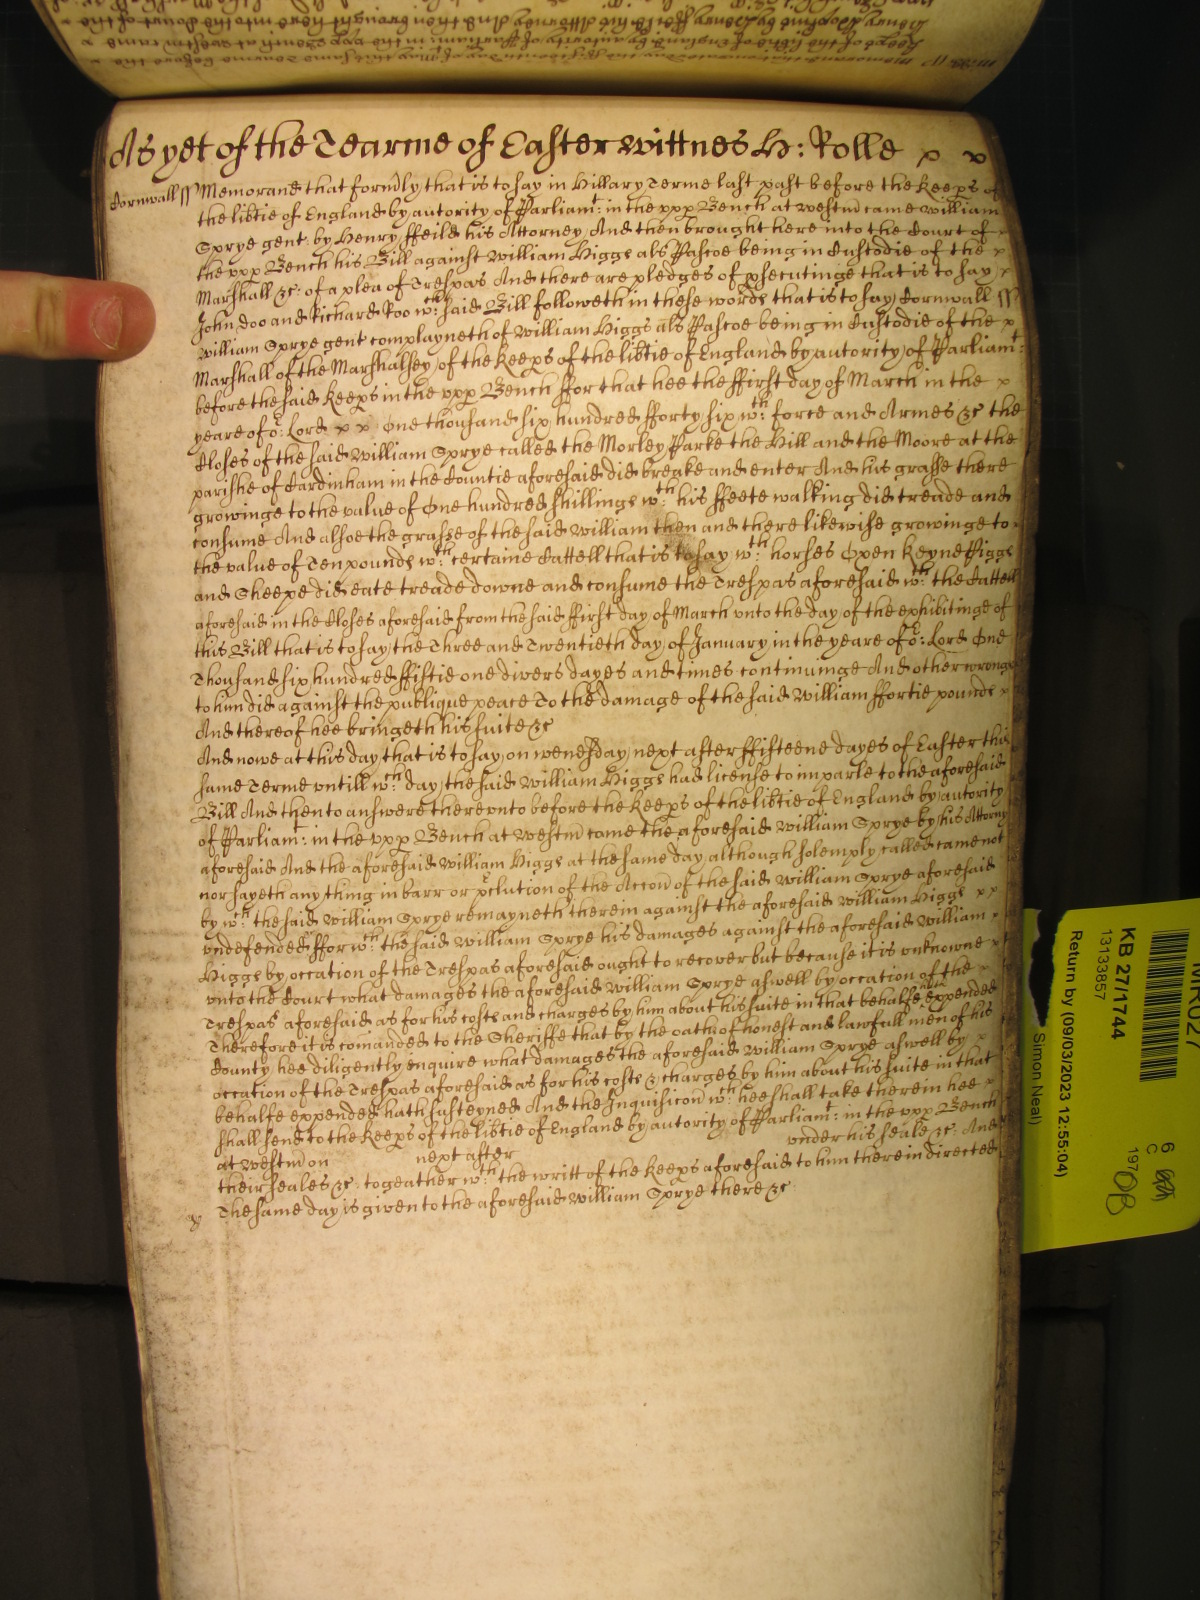 As yet of the Tearme of Easter Wittnes H: Rolle x x
Cornwall ss Memorand that formly that is to say in Hillary Terme last past before the Keeps of
the libtie of England by autority of Parliamt: in the vpp Bench at Westm came William
Sprye gent: by Henry ffeild his Attorney And then brought here into the Court of
the vpp Bench his Bill against William Higgs als Pascoe being in Custodie of the x
Marshall &c: of a plea of Trespas And there are pledges of psecutinge that is to say x
John Doo and Richard Roo wch: said Bill followeth in these words that is to say Cornwall ss
William Sprye gent complayneth of William Higgs als Pascoe being in Custodie of the x
Marshall of the Marshalsey of the Keeps of the libtie of England by autority of Parliamt:
before the said Keeps in the vpp Bench ffor that hee the ffirst day of March in the x
yeare of or: Lord x x One thousand six hundred fforty six wth: force and Armes &c the
Closes of the said William Sprye called the Morley Parke the Hill and the Moore at the
parishe of Cardinham in the Countie aforesaid did breake and enter And his grasse there
growinge to the value of One hundred shillings wth: his ffeete walking did treade and
consume And alsoe the grasse of the said William then and there likewise growinge to
the value of Ten pounds wth: certaine Cattell that is to say wth: horses Oxen Keyne Piggs
and Sheepe did eate treade downe and consume the Trespas aforesaid wth: the Cattell
aforesaid in the Closes aforesaid from the said ffirst day of March vnto the day of the exhibitinge of
this Bill that is to say the Three and Twentieth day of January in the yeare of or: Lord One
Thousand six hundred ffiftie one divers dayes and times continuinge And other wrongs
to him did against the publique peace To the damage of the said William ffortie pounds x
And thereof hee bringeth his suite &c
And nowe at this day that is to say on Wensday next after ffifteene dayes of Easter this
same Terme vntill wch: day the said William Higgs had license to imparle to the aforesaid
Bill And then to answere therevnto before the Keeps of the libtie of England by autority
of Parliamt: in the vpp Bench at Westm came the aforesaid William Sprye by his Attorny
aforesaid And the aforesaid William Higgs at the same day although solemply called came not
nor sayeth any thing in barr or pclution of the Accon of the said William Sprye aforesaid
by wch: the said William Sprye remayneth therein against the aforesaid William Higgs x x
vndefended ffor wch: the said William Sprye his damages against the aforesaid William
Higgs by occation of the Trespas aforesaid ought to recover but because it is vnknowne x
vnto the Court what damages the aforesaid William Sprye aswell by occation of the
Trespas aforesaid as for his costs and charges by him about his suite in that behalfe expended
Therefore it is comanded to the Sheriffe that by the oath of honest and lawfull men of his
County hee diligently enquire what damages the aforesaid William Sprye aswell by
occation of the Trespas aforesaid as for his costs & charges by him about his suite in that
behalfe expended hath susteyned And the Inquisicon wch: hee shall take therein hee x
shall send to the Keeps of the libtie of England by autority of Parliamt: in the vpp Bench
at Westm on next after vnder his seale &c: And
their seales &c: togeather wth: the writt of the Keeps aforesaid to him therein directed
The same day is given to the aforesaid William Sprye there &c:
KB 27/1744
13133857
Return by (09/03/2023 12:55:04)
Simon Neal
6
C
197